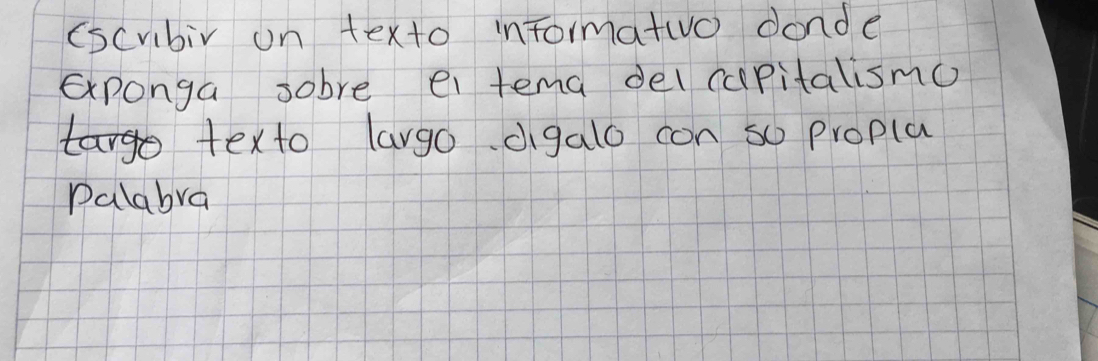 Escribir un texto informativo donde
Exponga sobre el tema del capitalismo
largo texto largo .digalo con so propia
palabra